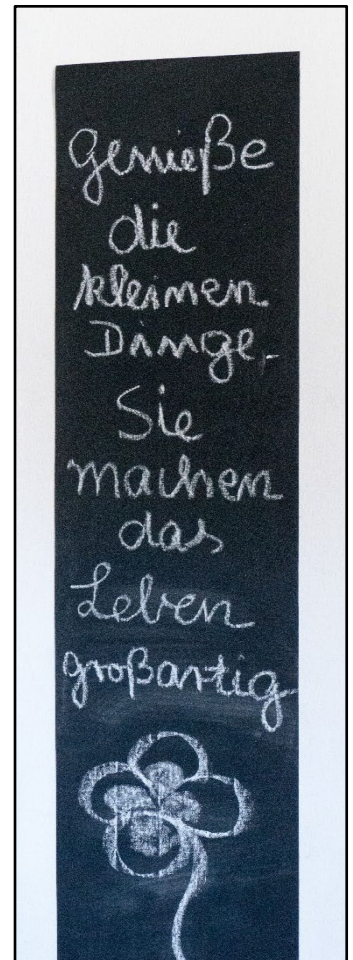 Genieße
die
kleinen
Dinge.
Sie
machen
das
Leben
großartig